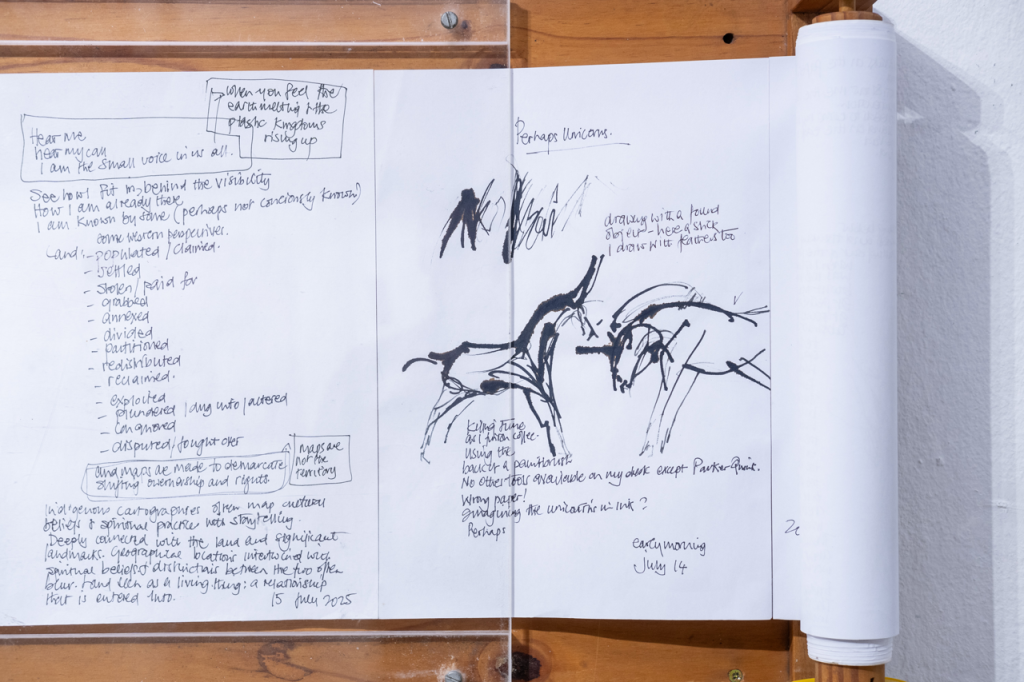 when you feel the
earth melting & the
plastic kingdoms
rising up
Hear me
hear my call
I am the small voice in us all.
See how I fit in, behind the visibility
How I am already there
I am known by some (perhaps not conciously known)
some western perspectives.
Land:- populated / claimed.
- settled
- stolen / paid for
- grabbed
- annexed
- divided
- partitioned
- redistributed
- reclaimed.
- exploited
- plundered / dug into / altered
- conquered
- disputed / fought over
and maps are made to demarcate
shifting ownership and rights
maps are
not the
territory
Indigenous cartographies often map cultural
beliefs & spiritual practice with storytelling.
Deeply connected with the land and significant
landmarks. Geographical locations intertwined with
spiritual beliefs & distinctions between the two often
blur. Land seen as a living thing: a relationship
that is entered into. 15 July 2025
Perhaps Unicorns.
drawing with a found
object - here a stick
I draw with feathers too
Killing time
as I poison coffee.
Using the
back of a paintbrush
No other tools available on my desk except Parker Pens.
Wrong paper!
Imagining the unicorns in ink?
Perhaps
early morning
July 14